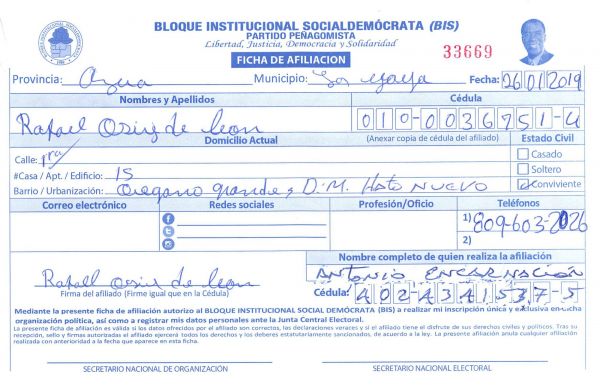 BLOQUE INSTITUCIONAL SOCIALDEMÓCRATA (BIS)
PARTIDO PEÑAGOMISTA
Libertad, Justicia, Democracia y Solidaridad
FICHA DE AFILIACION
33669
Provincia: Azua Municipio: Las Yayas Fecha: 26/01/2019
Nombres y Apellidos Cédula
Rafael Osiz de Leon 010-0036951-4
Domicilio Actual (Anexar copia de cédula del afiliado) Estado Civil
Calle: 1ra Casado
#Casa / Apt. / Edificio: 15 Soltero
Barrio / Urbanización: Oregano grande, D.M. Hato Nuevo Conviviente
Correo electrónico Redes sociales Profesión/Oficio Teléfonos
1) 809-603-2026
2)
Nombre completo de quien realiza la afiliación
Rafael Osiz de Leon ANTONIO ENCARNACIÓN
Firma del afiliado (Firme igual que en la Cédula) Cédula: 402-4341537-5
Mediante la presente ficha de afiliación autorizo al BLOQUE INSTITUCIONAL SOCIAL DEMÓCRATA (BIS) a realizar mi inscripción única y exclusiva en dicha
organización política, así como a registrar mis datos personales ante la Junta Central Electoral.
La presente ficha de afiliación es válida si los datos ofrecidos por el afiliado son correctos, las declaraciones veraces y si el titular tiene el disfrute de sus derechos civiles y políticos. Tras su
recepción, sello y firmas autorizadas el afiliado ejercerá todos los derechos y los deberes estatutariamente sancionados, de acuerdo a la ley. La presente afiliación anula cualquier afiliación
realizada con anterioridad a la fecha que aparece en esta ficha.
SECRETARIO NACIONAL DE ORGANIZACIÓN SECRETARIO NACIONAL ELECTORAL